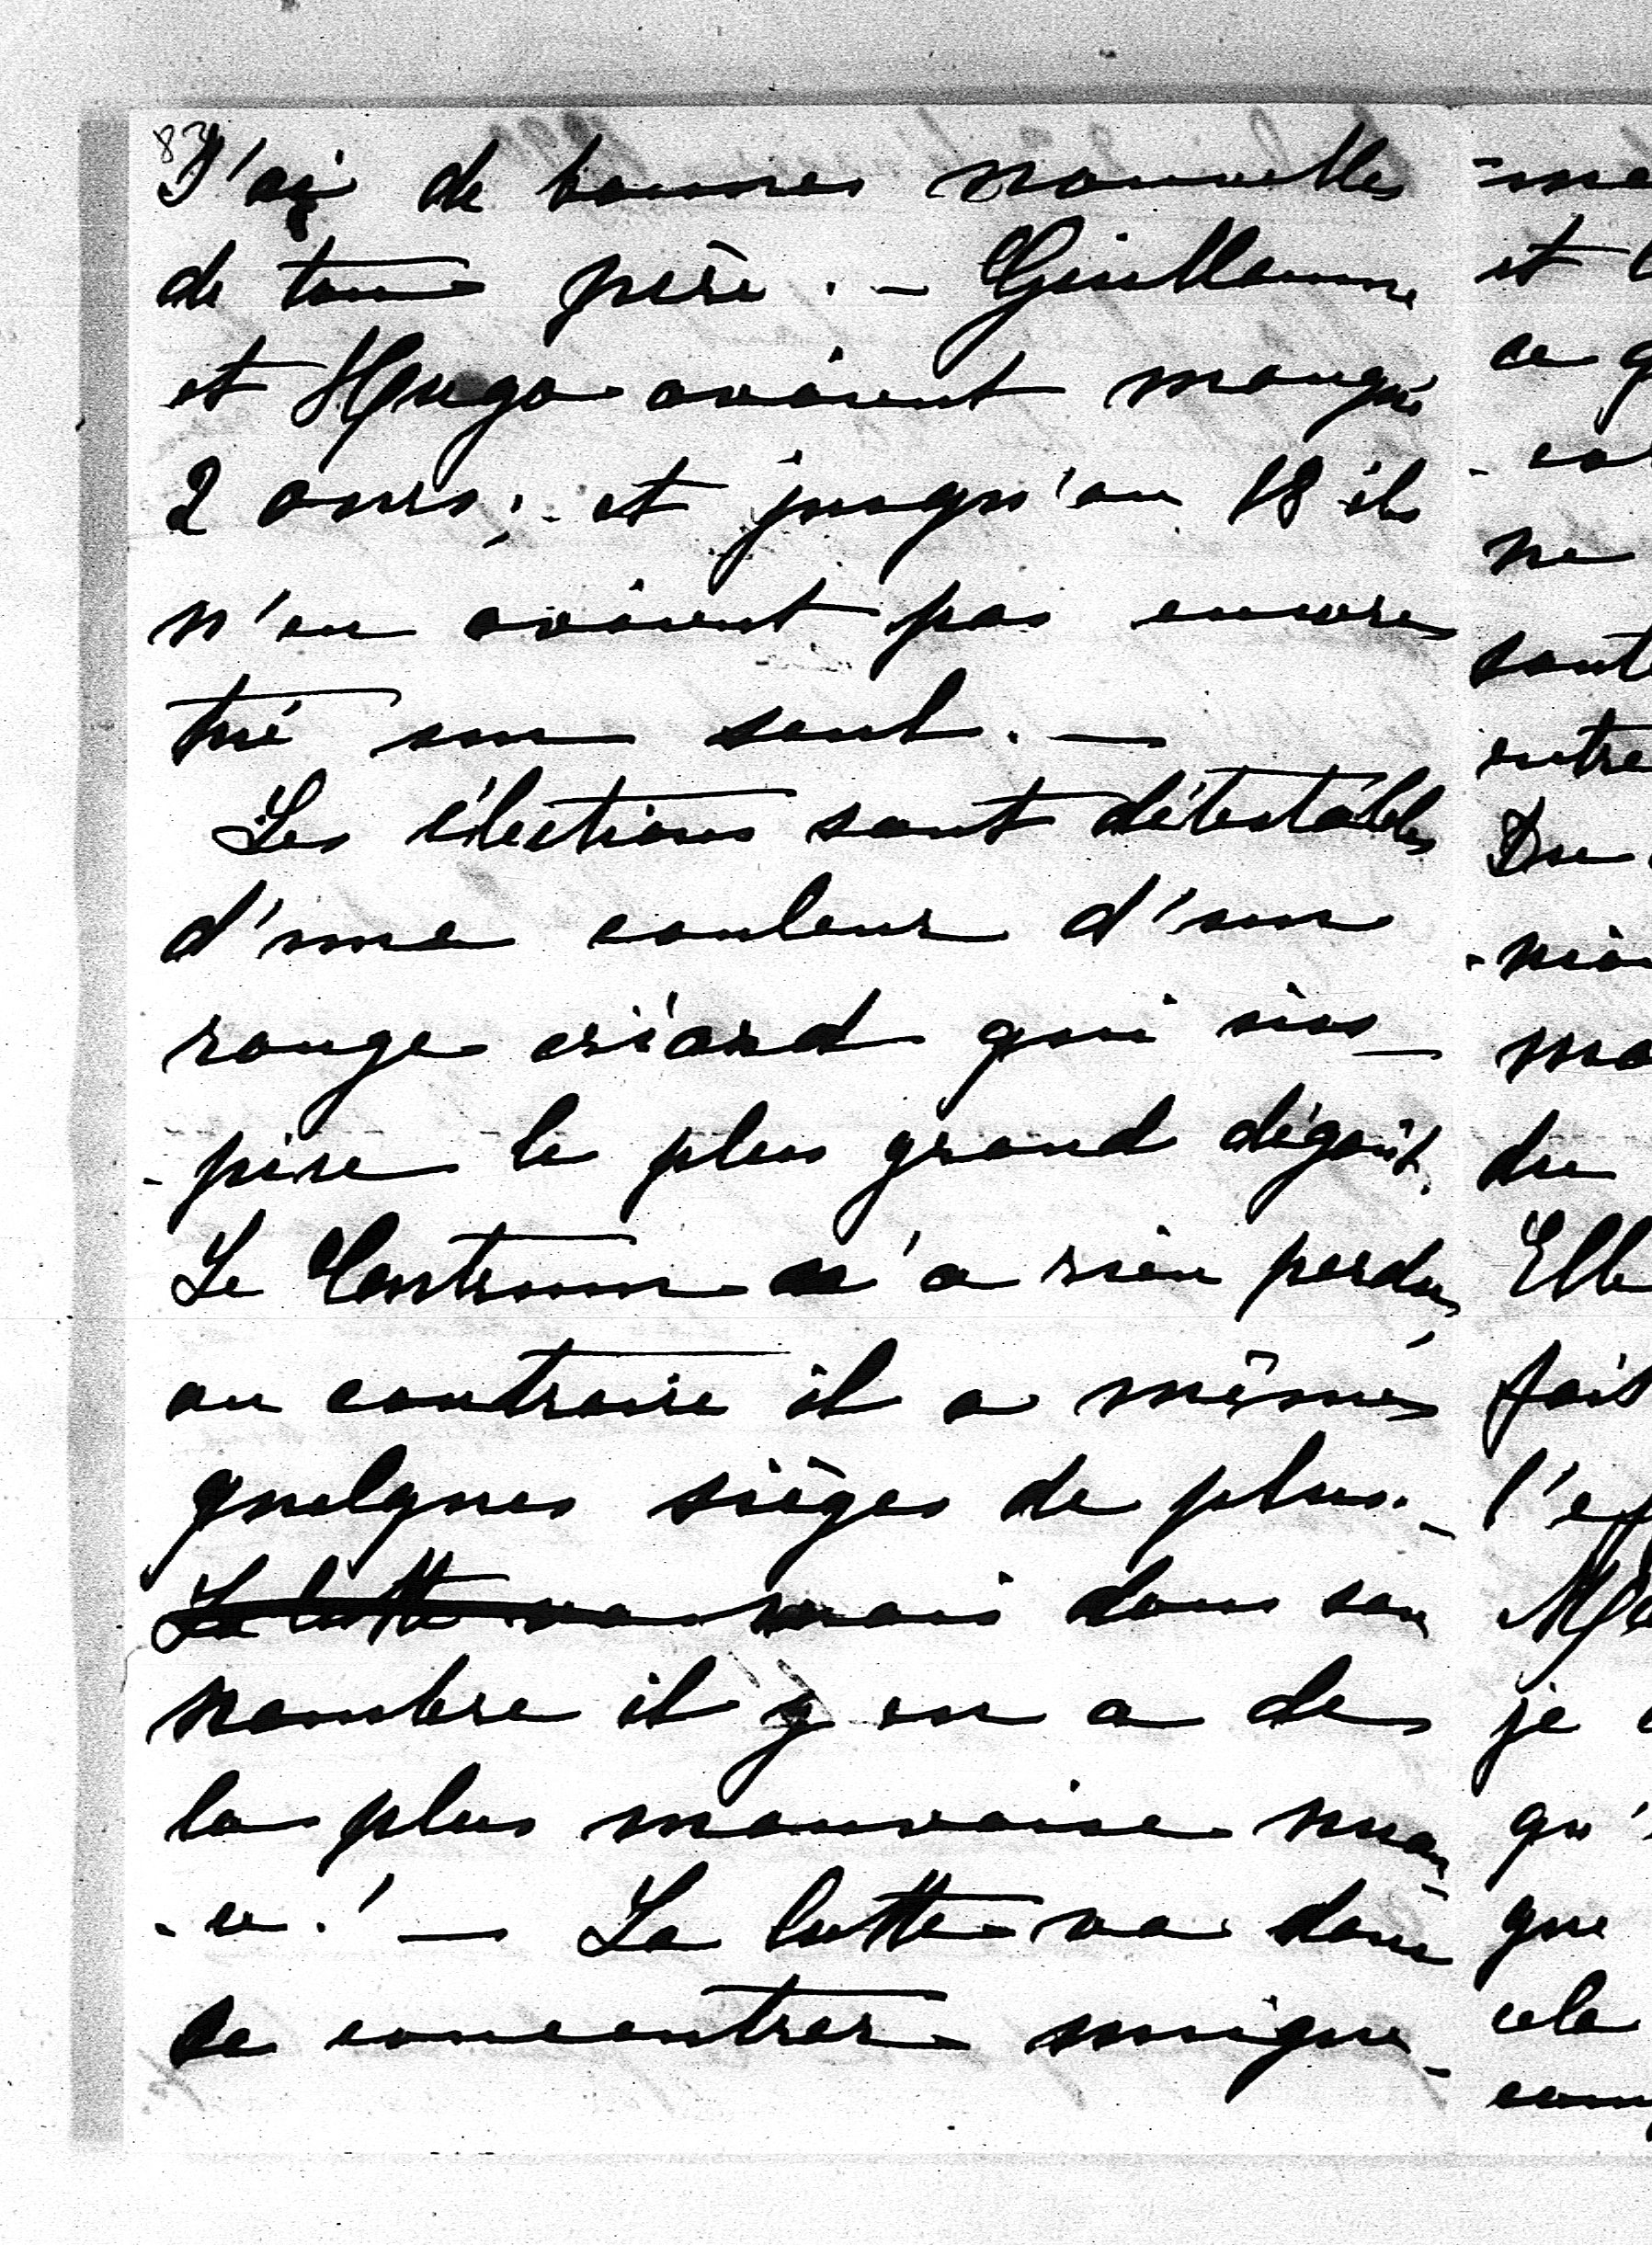 83
J'ai de bonnes nouvelles
de ton père. - Guillaume
et Hugo avaient manqué
2 ours; et jusqu'au 18 ils
n'en avaient pas encore
tué un seul. —
Les élections sont détestables
d'une couleur d'un
rouge criard qui ins-
-pire le plus grand dégoût.
Le Centrum n'a rien perdu,
au contraire il a même
quelques sièges de plus. -
La lutte va mais dans son
nombre il y en a de
la plus mauvaise nuan-
-ce! — La lutte va donc
se concentrer unique-
-me
et
ce q
ne
sont
entre
ma
du
Elle
fait
l'ef
je
qu'
que
cela
com